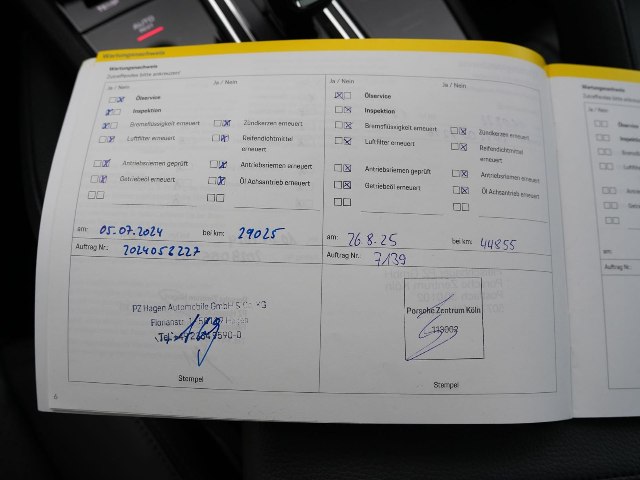 AUTO
Wartungsnachweis
Wartungsnachweis
Zutreffendes bitte ankreuzen!
Ja / Nein Ja / Nein
Ölservice
Inspektion
Bremsflüssigkeit erneuert Zündkerzen erneuert
Luftfilter erneuert Reifendichtmittel
erneuert
Antriebsriemen geprüft Antriebsriemen erneuert
Getriebeöl erneuert Öl Achsantrieb erneuert
am: 05.07.2024 bei km: 29025
Auftrag Nr.: 2024052227
PZ Hagen Automobile GmbH & Co. KG
Florianstr.
Stempel
6
Ja / Nein Ja / Nein
Ölservice
Inspektion
Bremsflüssigkeit erneuert Zündkerzen erneuert
Luftfilter erneuert Reifendichtmittel
erneuert
Antriebsriemen geprüft Antriebsriemen erneuert
Getriebeöl erneuert Öl Achsantrieb erneuert
am: 26.8.25 bei km: 44855
Auftrag Nr.: 7139
Porsche Zentrum Köln
Stempel
Wartungsnachweis
Zutreffendes bitte
Ja / Nein
am:
Auftrag Nr.: